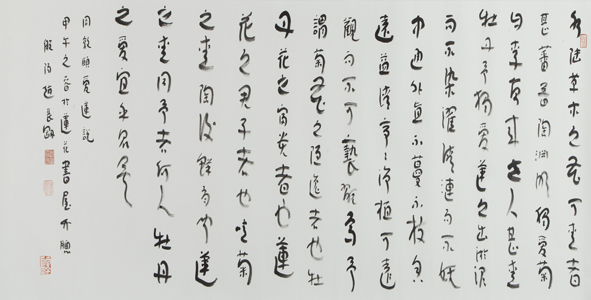 水陸草木之花可愛者
甚蕃晉陶淵明獨愛菊
自李唐來世人甚愛
牡丹予獨愛蓮之出淤泥
而不染濯清漣而不妖
中通外直不蔓不枝香
遠益清亭〻淨植可遠
觀而不可褻翫焉予
謂菊花之隱逸者也牡
丹花之富貴者也蓮
花之君子者也噫菊
之愛陶後鮮有聞蓮
之愛同予者何人牡丹
之愛宜乎眾矣
周敦頤愛蓮説
甲午之春於蓮花書屋
趙長